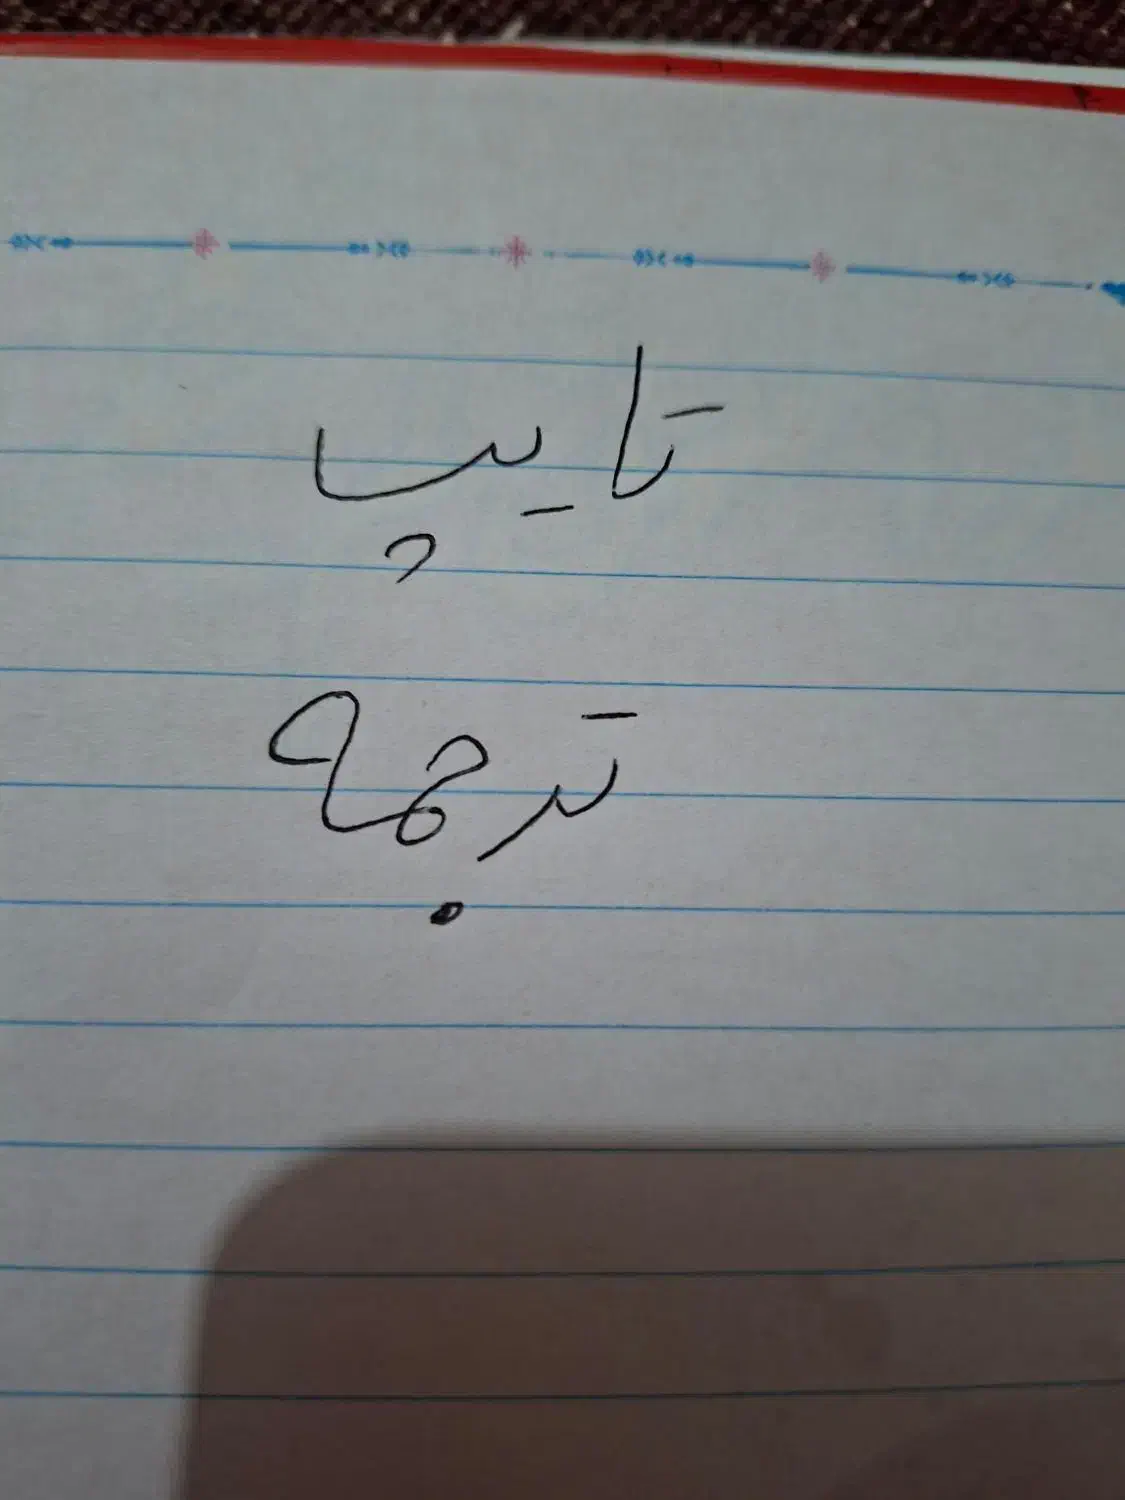 تایپ
ترجمه